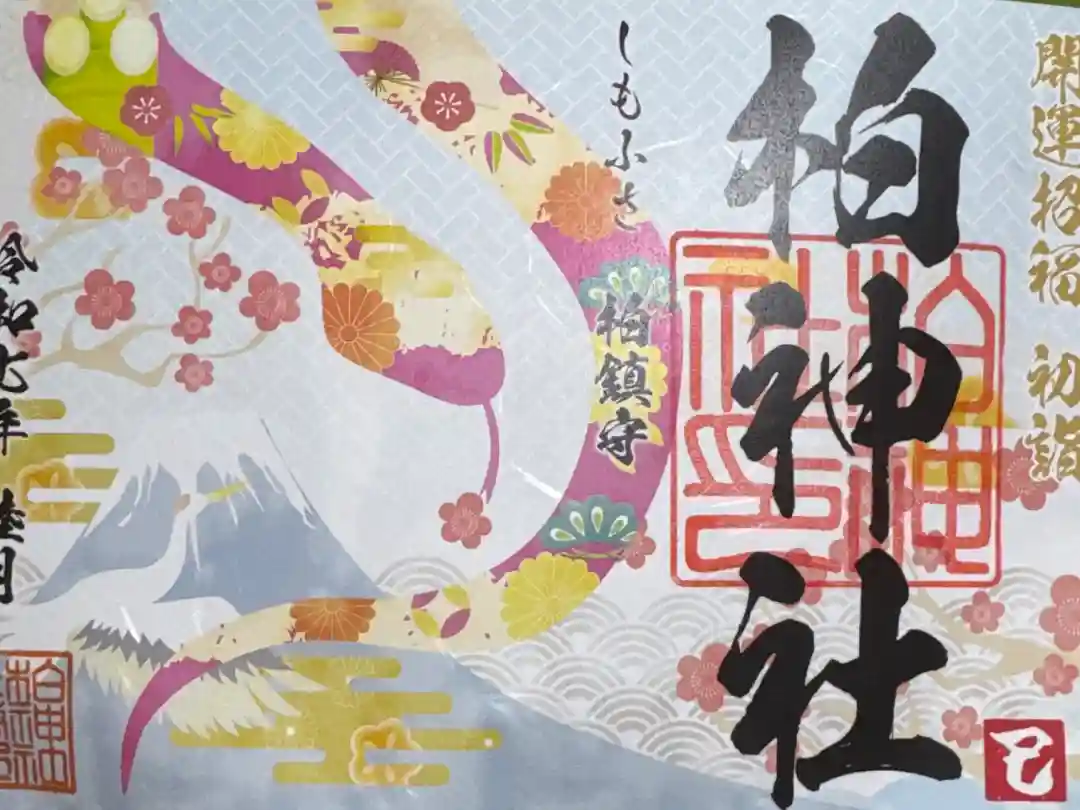 開運招福 初詣
柏神社
しもふさ
柏鎮守
令和七年 睦月
柏神社印
巳